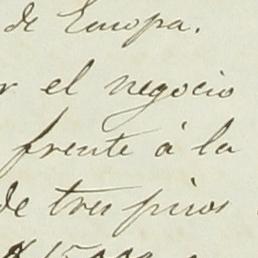 de Europa.
r el negocio
frente á la
de tres pisos